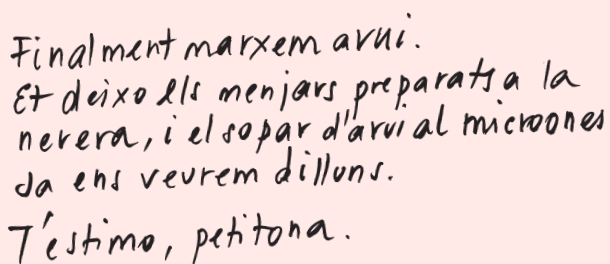 Finalment marxem avui.
Et deixo els menjars preparats a la
nevera, i el sopar d'avui al microones
Ja ens veurem dilluns.
T'estimo, petitona.